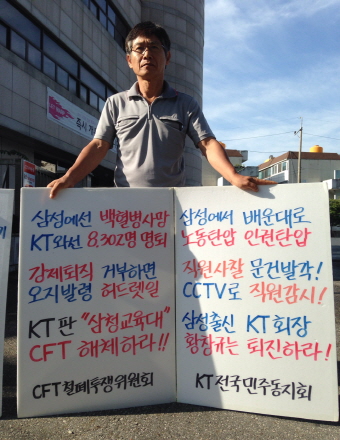 삼성에선 백혈병사망
KT와선 8,302명 명퇴
강제퇴직 거부하면
오지발령 허드렛일
KT판 "삼청교육대"
CFT 해체하라!!
CFT철폐투쟁위원회
삼성에서 배운대로
노동탄압 인권탄압
직원사찰 문건발각!
CCTV로 직원감시!
삼성출신 KT회장
황창규는 퇴진하라!
KT전국민주동지회